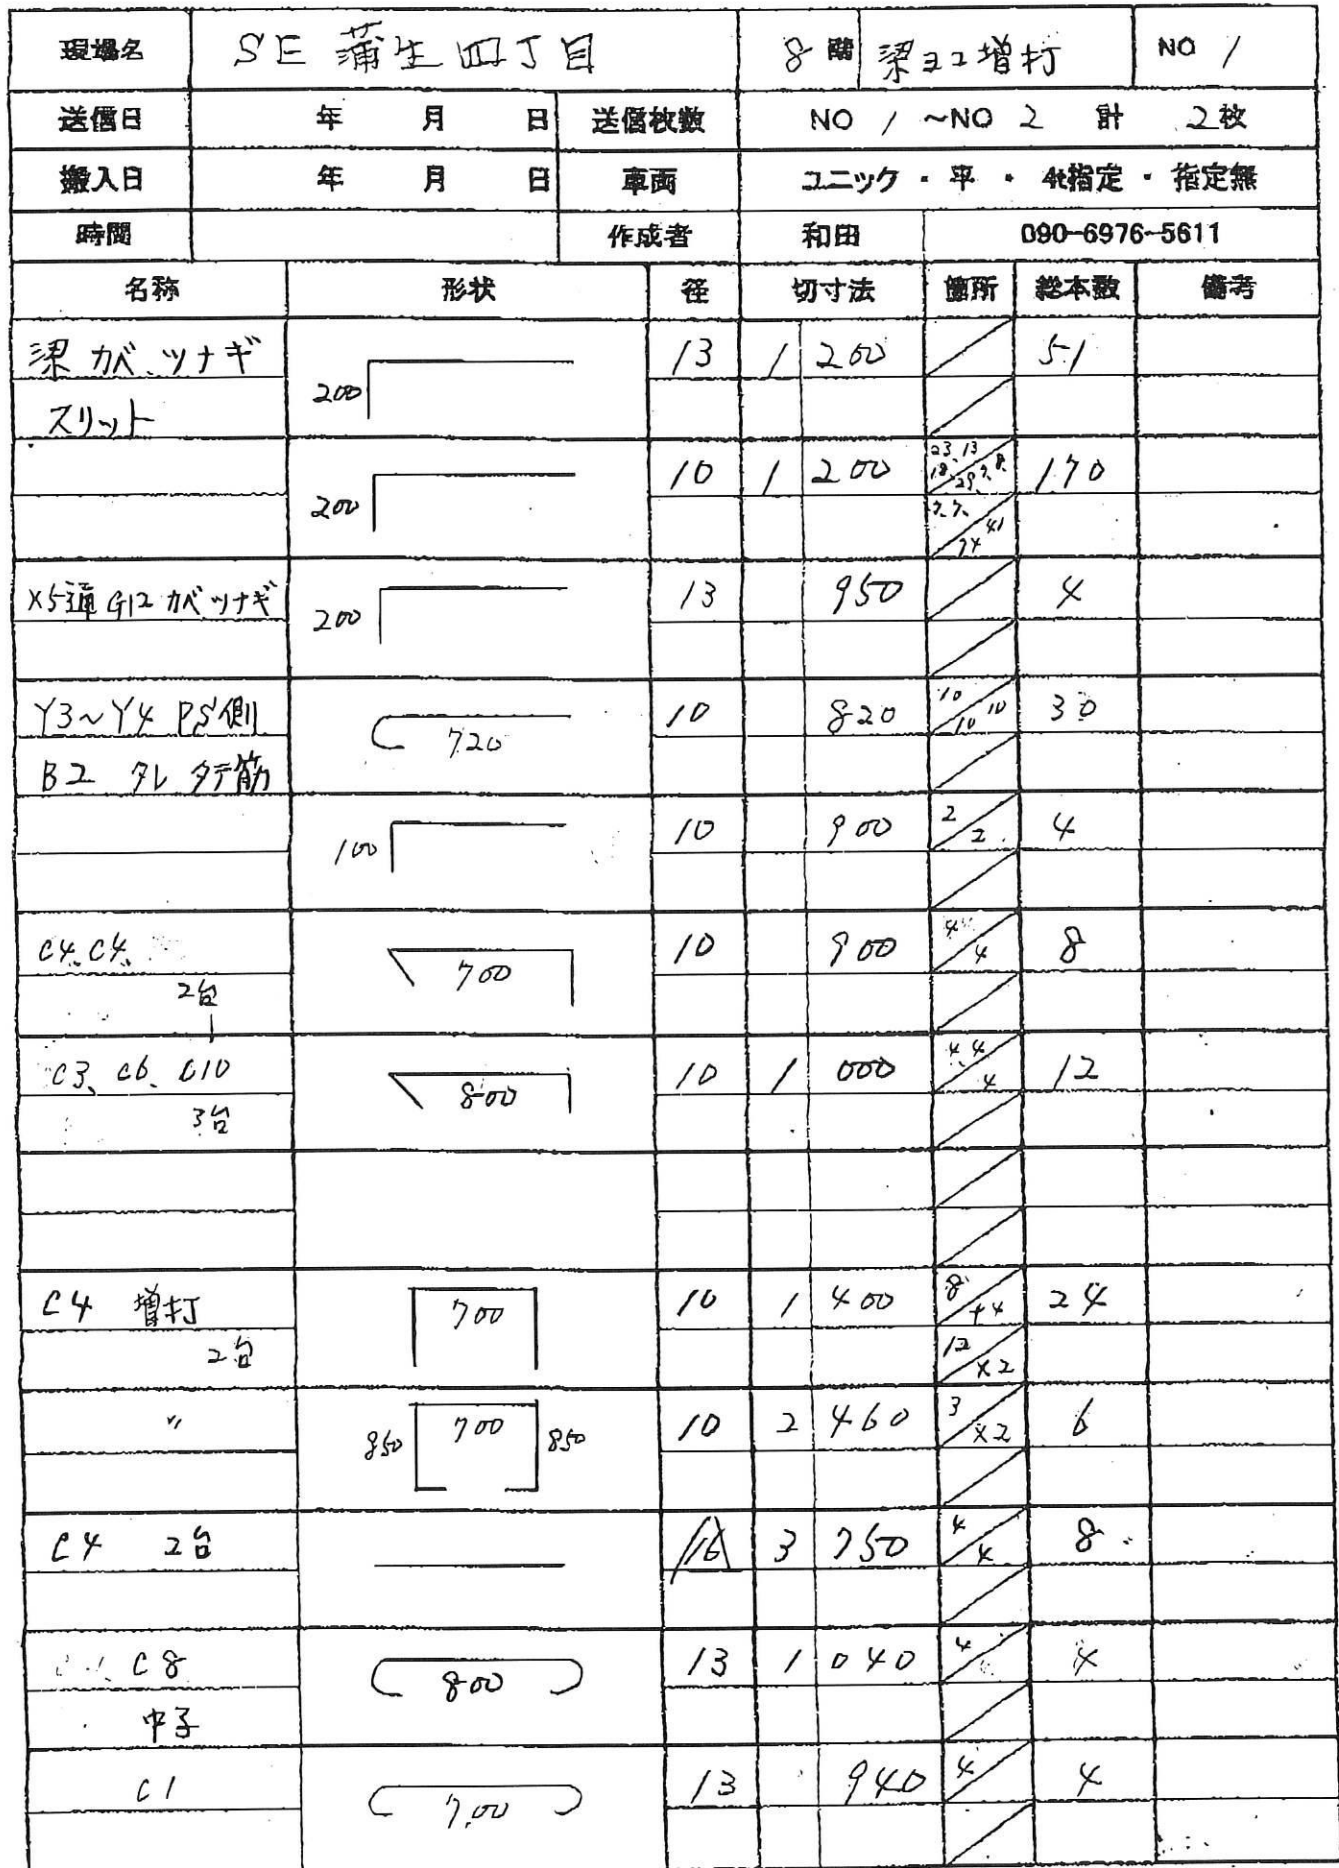 現場名 SE 蒲生四丁目 8 階 梁ヨコ増打 NO 1
送信日 年 月 日 送信枚数 NO 1 ~NO 2 計 2枚
搬入日 年 月 日 車両 ユニック・平・4t指定・指定無
時間 作成者 和田 090-6976-5611
名称 形状 径 切寸法 箇所 総本数 備考
梁 カベ ツナギ 200 13 1 200 51
スリット
200 10 1 200 23、13 170
18、29、7、8
7、7、41
74
X5通 G12 カベツナギ 200 13 950 4
Y3~Y4 PS側 720 10 820 10 10 10 30
B2 タレ タテ筋
100 10 900 2 2 4
C4、C4、 700 10 900 4 4 8
2台
C3、C6、C10 800 10 1 000 4 4 4 12
3台
C4 増打 700 10 1 400 8 +4 24
2台 12 ×2
〃 850 700 850 10 2 460 3 ×2 6
C4 2台 16 3 750 4 4 8
C8 800 13 1 040 4 4
中子
C1 700 13 940 4 4